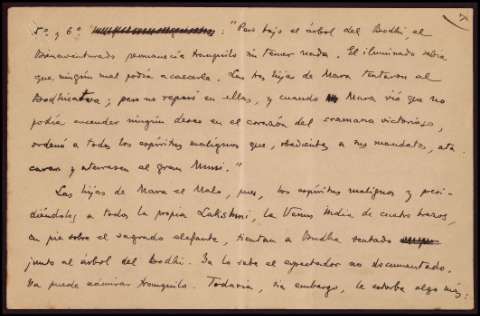 5º. y 6º. : "Pero bajo el árbol del Bodhi el
Bienaventurado permanecía tranquilo sin temer nada. El iluminado sabía
que ningún mal podía acaecerle. Las tres hijas de Mara tentaron al
Bodhisatva; pero no reparó en ellas, y cuando Mara vió que no
podía encender ningún deseo en el corazón del sramana victorioso,
ordenó a todos los espíritus malignos que, obedientes a sus mandatos, ata
caran y aterrasen al gran Muni."
Las hijas de Mara el Malo, pues, los espíritus malignos y presi-
diéndoles a todos la propia Lakshmi, la Venus India de cuatro brazos,
en pie sobre el sagrado elefante, tientan a Budha sentado
junto al árbol del Bodhi. Ya lo sabe el espectador no documentado.
Ya puede admirar tranquilo. Todavía, sin embargo, le estorba algo más: